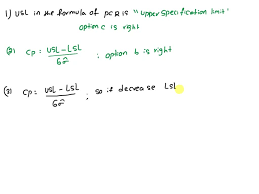 1) USL in the formula of PCR IS "upper specification limit"
option c is right
(2) Cp = USL - LSL / 6σ̂ ; option b is right
(3) Cp = USL - LSL / 6σ̂ ; so if decrease LSL